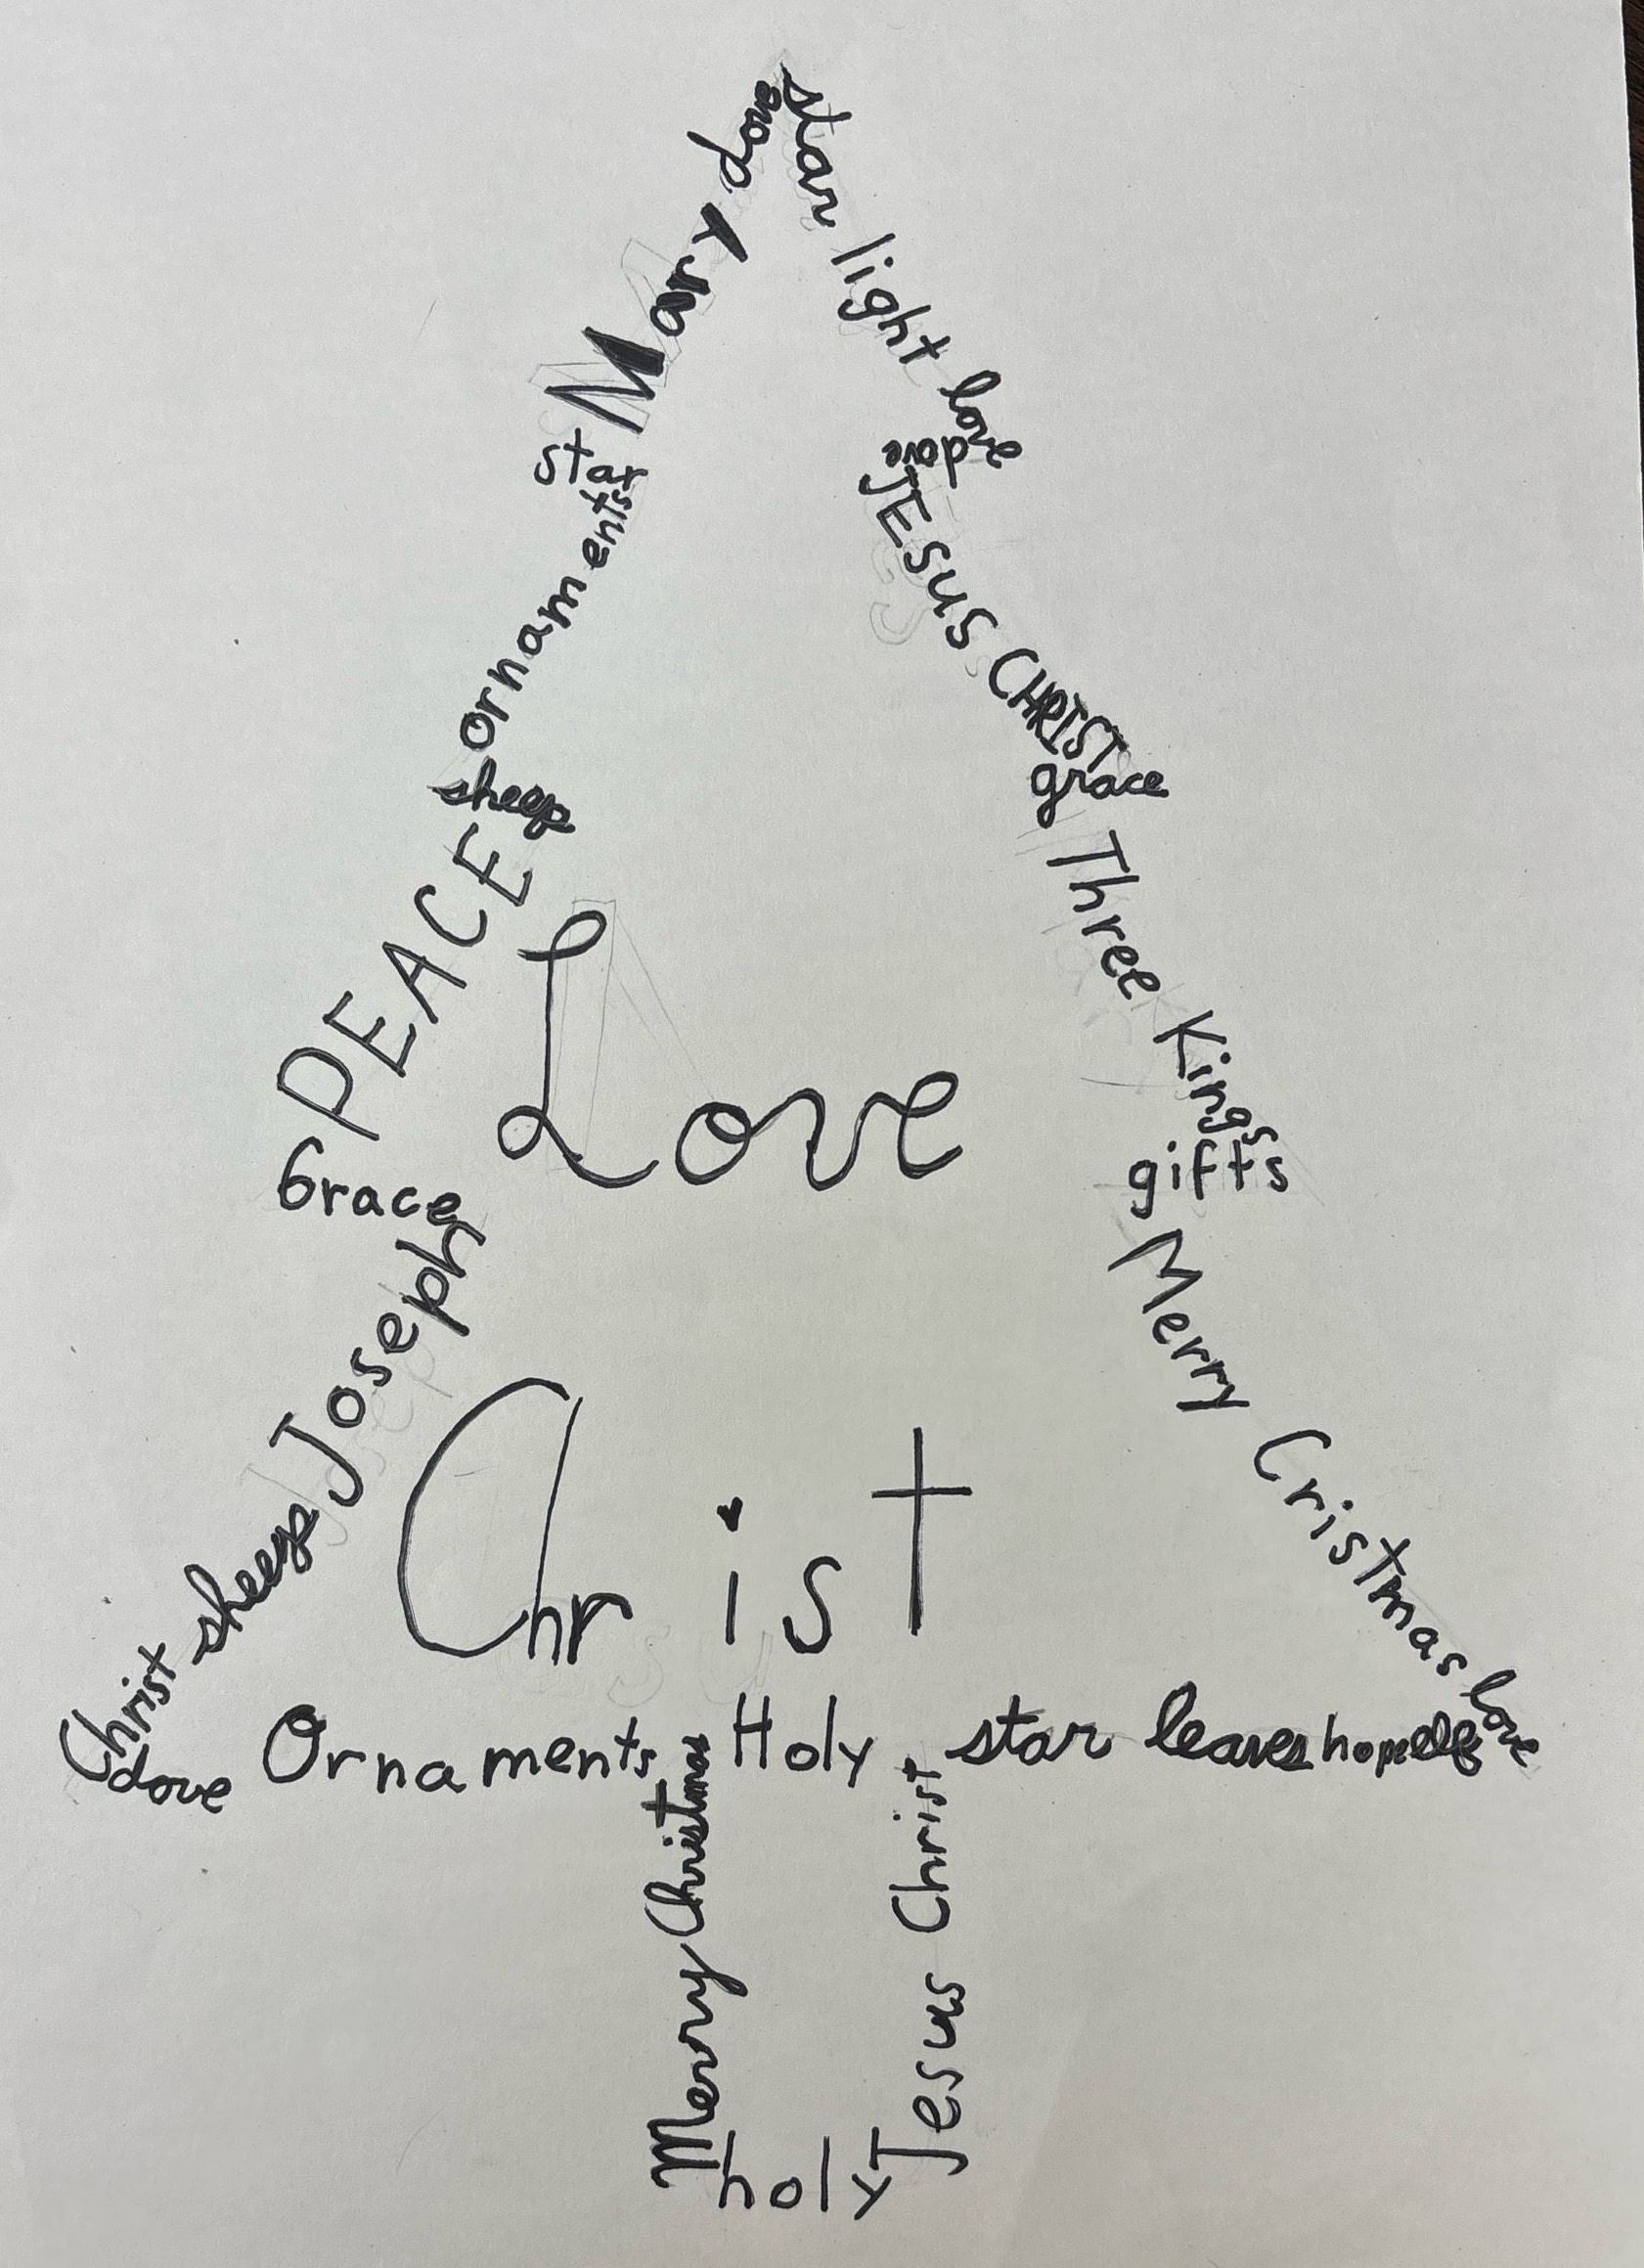 dove
star
Mary
light
love
star
dove
ornaments
JESUS CHRIST
sheep
grace
PEACE
Three Kings
Love
Grace
gifts
Joseph
Merry Cristmas
Christ
sheep
Christ
love
dove
Ornaments Holy star leaves hope
Merry Christmas
Jesus Christ
holy